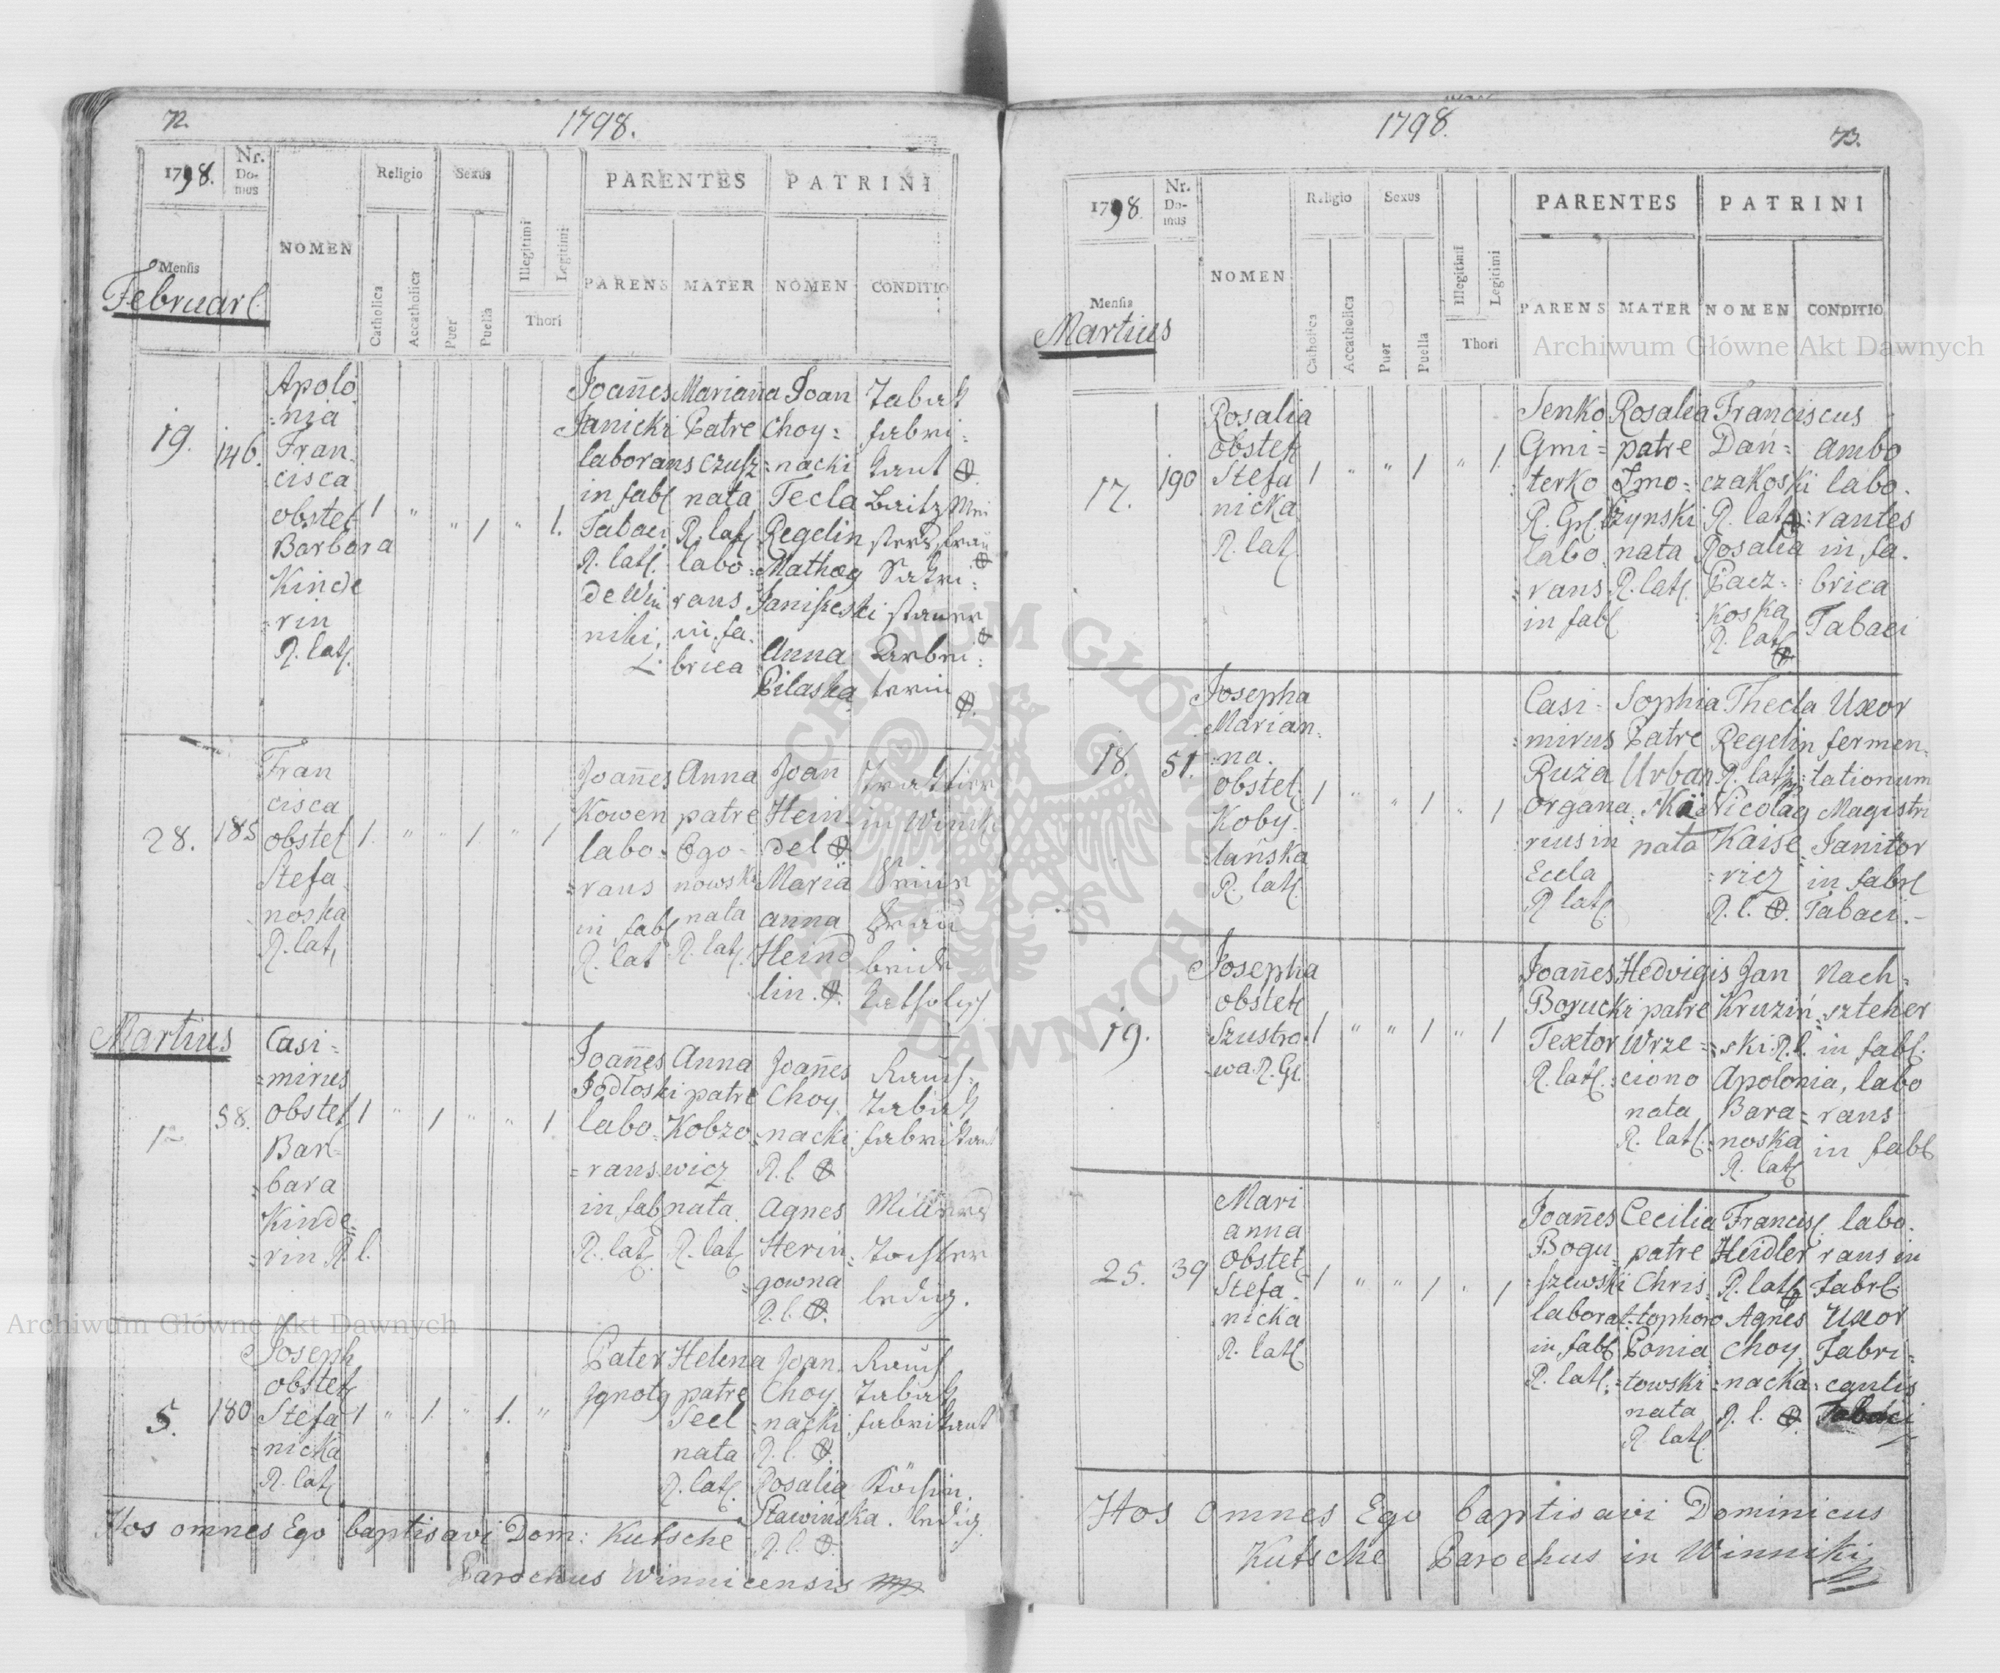 72.
1798.
1798.
Nr.
Do-
mus
NOMEN
Religio
Sexus
PARENTES
PATRINI
Mensis
Februar.
Catholica
Accatholica
Puer
Puella
Illegitimi
Legitimi
Thori
PARENS
MATER
NOMEN
CONDITIO
19.
146.
Apolo
=nia
Fran=
cisca
obstet
Barbara
Kinde
=rin
R. lat.
1
"
"
1
"
1.
Joañes
Janicki
laborans
in fab.
Tabaci
R. lat.
de Win
niki.
Mariana
Patre
czusz
nata
R. lat.
labo=
rans
in fa=
brica
Joan
Choy=
=nacki
Tecla
Regelin
Anna
Pilaska
Tabak
fabri=
kant
Arbei=
terin
28.
185
Fran
cisca
obstet
Stefa
noska
R. lat.
1.
"
"
1
"
1
Joañes
Kowen
labo=
=rans
in fab
R. lat
Anna
patre
nata
R. lat.
Joañ
Hein=
del
Maria
anna
Heind
lin.
in Winik
seine
Frau
beide
Martius
1
58.
Casi=
=mirus
obstet
Bar=
=bara
Kinde=
=rin R. l.
1
"
1
"
"
1
Joañes
Jodłoski
labo=
=rans
in fab
R. lat.
Anna
patre
Kobzo=
wicz
nata
R. lat
Joañes
Choy
=nacki
R. l.
Agnes
Sterin=
=gowna
R. l.
Rauch
Tabak
fabrikant
Tochter
ledig.
5.
180
Joseph
obstet
Stefa
=nicka
R. lat
1
"
1.
"
1.
"
Pater
Ignotq
Helena
patre
Seel
nata
R. lat.
Joan
Choy
=nacki
R. l.
Rosalia
Stawińska.
R. l.
Rauch
Tabak
fabrikant
Köchin.
ledig.
Hos omnes Ego baptisavi Dom: Kutsche
Parochus Winnicensis
1798.
73.
1798.
Nr.
Do-
mus
NOMEN
Religio
Sexus
PARENTES
PATRINI
Mensis
Martius
Catholica
Accatholica
Puer
Puella
Illegitimi
Legitimi
Thori
PARENS
MATER
NOMEN
CONDITIO
17.
190
Rosalia
obstet
Stefa
nicka
R. lat
1
"
"
1
"
1.
Senko
Gmi=
terko
R. Gr.
labo
=rans
in fab
Rosalia
patre
Smo=
czynski
nata
R. lat.
Franciscus
Dań=
czakoski
R. lat
Rosalia
Pacz=
koska
R. lat
ambo
labo=
=rantes
in fa=
brica
Tabaci
18.
51.
Josepha
Marian=
=na.
obstet.
Koby=
=lańska
R. lat.
1
"
"
1
"
1
Casi=
=mirus
Ruża
organa=
rius in
Eccla
R lat
Sophia
Patre
Urban
=ski
nata
Thecla
Regelin
R. lat
Nicolaq
Kaise
=ricz
R. l.
Uxor
fermen=
=tationum
Magistri
Janitor
in fabr
Tabaci.
19.
Josepha
obstet
Szustro=
=wa R. Gr.
1
"
"
1
"
1
Joañes
Borucki
Textor
R. lat.
Hedvigis
patre
Wrze=
=ciono
nata
R. lat.
Jan
Kruziń=
=ski R. l.
Apolonia
Bara=
=noska
R. lat
Nach=
szteher
in fab.
labo
=rans
in fab
25.
39
Mari
anna
Obstet
Stefa=
nicka
R. lat
1
"
"
1
1
Joañes
Bogu=
=szewski
laborat.
in fab
R. lat.
Cecilia
patre
Chris=
=tophoro
Ponia
=towski
nata
R lat
Francisc.
Heidler
R. lat
Agnes
Choy
=nacka
R. l.
labo=
rans in
Fabr
Uxor
Fabri=
=cantis
Tabaci
Hos omnes Ego baptisavi Dominicus
Kutsche Parochus in Winniki
Archiwum Główne Akt Dawnych
Archiwum Główne Akt Dawnych
ARCHIWUM GŁÓWNE AKT DAWNYCH